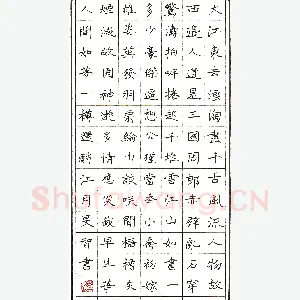 大江東去浪淘盡千古風流人物故
西邊人道是三國周郎赤壁亂石穿
驚濤拍岸捲起千堆雪江山如畫一
多少豪傑遙想公瑾當年小喬初嫁
雄姿英發羽扇綸巾談笑間檣櫓灰
煙滅故國神遊多情應笑我早生華
人間如夢一樽還酹江月吳智書